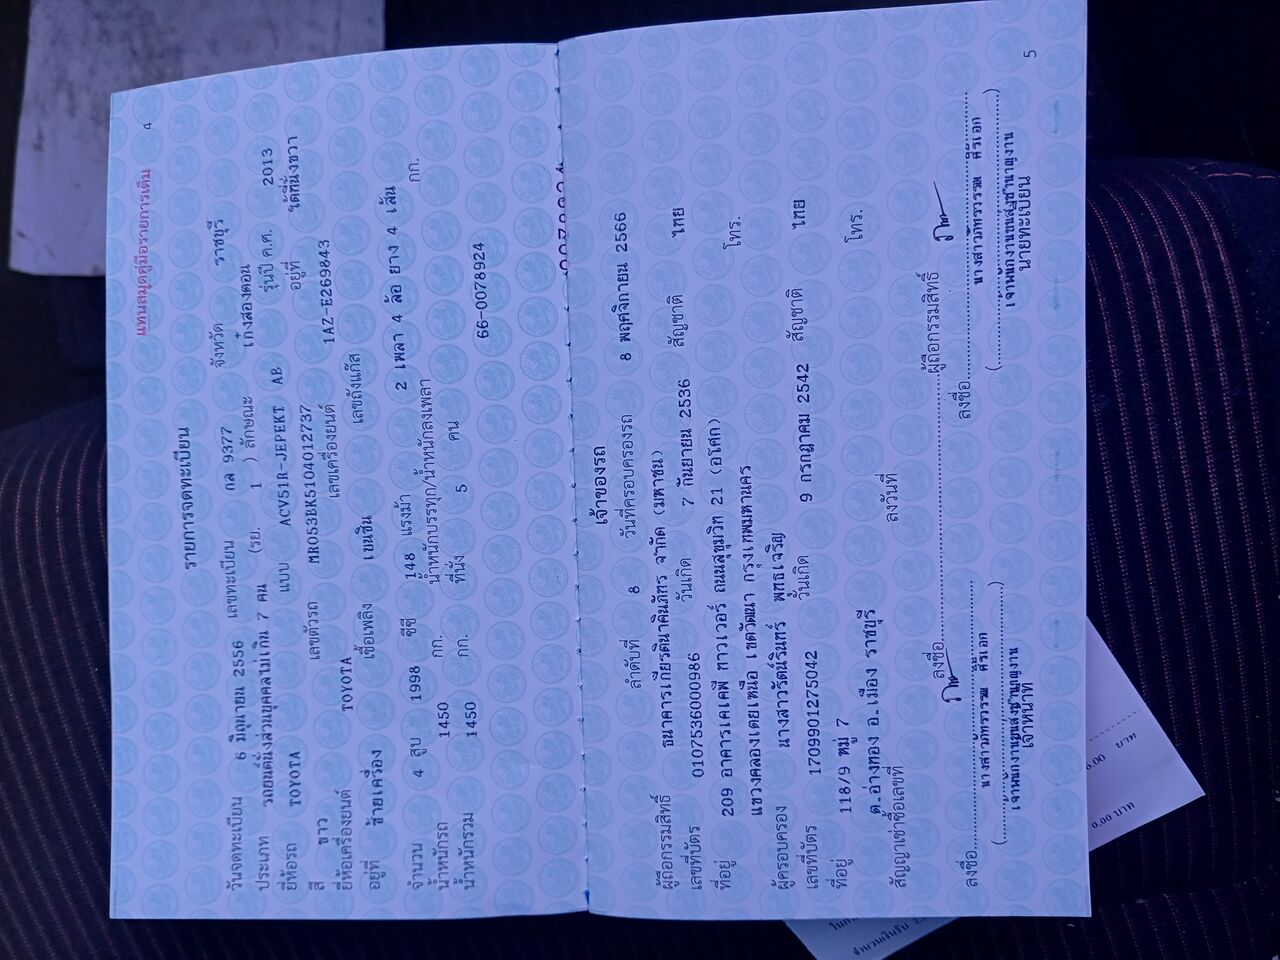 4
แทนสมุดคู่มือรายการเดิม
รายการจดทะเบียน
วันจดทะเบียน 6 มิถุนายน 2556 เลขทะเบียน กล 9377 จังหวัด ราชบุรี
ประเภท รถยนต์นั่งส่วนบุคคลไม่เกิน 7 คน (รย. 1 ) ลักษณะ เก๋งสองตอน
ยี่ห้อรถ TOYOTA แบบ ACV51R-JEPEKT AB รุ่นปี ค.ศ. 2013
สี ขาว เลขตัวรถ MR053BK5104012737 อยู่ที่ ใต้ที่นั่งขวา
ยี่ห้อเครื่องยนต์ TOYOTA เลขเครื่องยนต์ 1AZ-E269843
อยู่ที่ ซ้ายเครื่อง เชื้อเพลิง เบนซิน เลขถังแก๊ส
จำนวน 4 สูบ 1998 ซีซี 148 แรงม้า 2 เพลา 4 ล้อ ยาง 4 เส้น
น้ำหนักรถ 1450 กก. น้ำหนักบรรทุก/น้ำหนักลงเพลา กก.
น้ำหนักรวม 1450 กก. ที่นั่ง 5 คน
66-0078924
เจ้าของรถ
ลำดับที่ 8 วันที่ครอบครองรถ 8 พฤศจิกายน 2566
ผู้ถือกรรมสิทธิ์ ธนาคารเกียรตินาคินภัทร จำกัด (มหาชน)
เลขที่บัตร 0107536000986 วันเกิด 7 กันยายน 2536 สัญชาติ ไทย
ที่อยู่ 209 อาคารเคเคพี ทาวเวอร์ ถนนสุขุมวิท 21 (อโศก)
แขวงคลองเตยเหนือ เขตวัฒนา กรุงเทพมหานคร โทร.
ผู้ครอบครอง นางสาวรัตน์รินทร์ พุทธเจริญ
เลขที่บัตร 1709901275042 วันเกิด 9 กรกฎาคม 2542 สัญชาติ ไทย
ที่อยู่ 118/9 หมู่ 7
ต.อ่างทอง อ.เมือง ราชบุรี โทร.
สัญญาเช่าซื้อเลขที่ ลงวันที่
ลงชื่อ ผู้ถือกรรมสิทธิ์
ลงชื่อ ลงชื่อ
นางสาวภัทรวรรณ นางสาวภัทรวรรณ
เจ้าพนักงานขนส่งชำนาญงาน เจ้าพนักงานขนส่งชำนาญงาน
เจ้าหน้าที่ นายทะเบียน
5
บาท
0.00 บาท